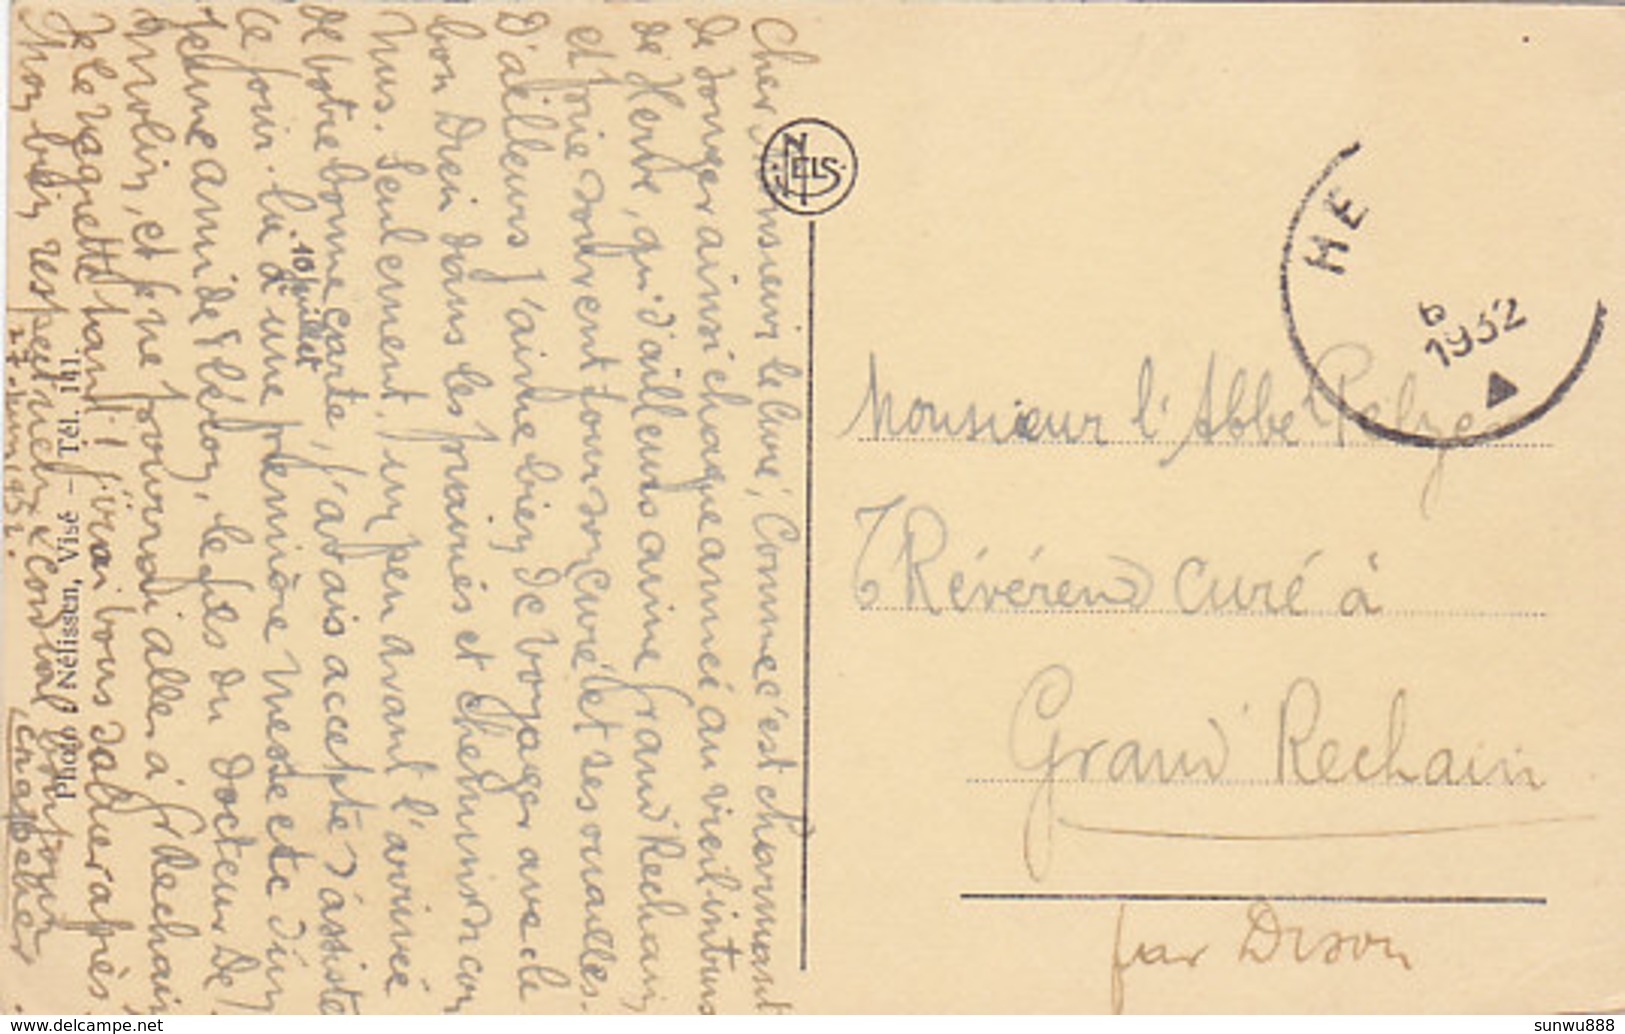 Cher Monsieur le Curé, Comme c'est charmant
de songer ainsi chaque année au vieil intrus
de Herve, qui d'ailleurs aime Grand Rechain
et prie souvent pour son curé et ses ouailles.
D'ailleurs j'aime bien de voyager avec le
bon Dieu dans les prairies et chemins
Nus. Seulement, un peu avant l'arrivée
de votre bonne carte, j'avais accepté d'assister
ce jour-là d'une première messe etc d'un
10 juillet
jeune ami de Fléron, le fils du Docteur De
molin, et ne pourrai aller à Gd Rechain
Je le regrette tant! J'irai vous saluer après.
Mon bien respectueux & cordial bonjour
27 juin 1932.
Photo Nélissen, Visé – Tél. 141.
NELS
HE
6
1932
Monsieur l'Abbé Pelzer
Révérend Curé à
Grand Rechain
par Dison
www.delcampe.net
sunwu888